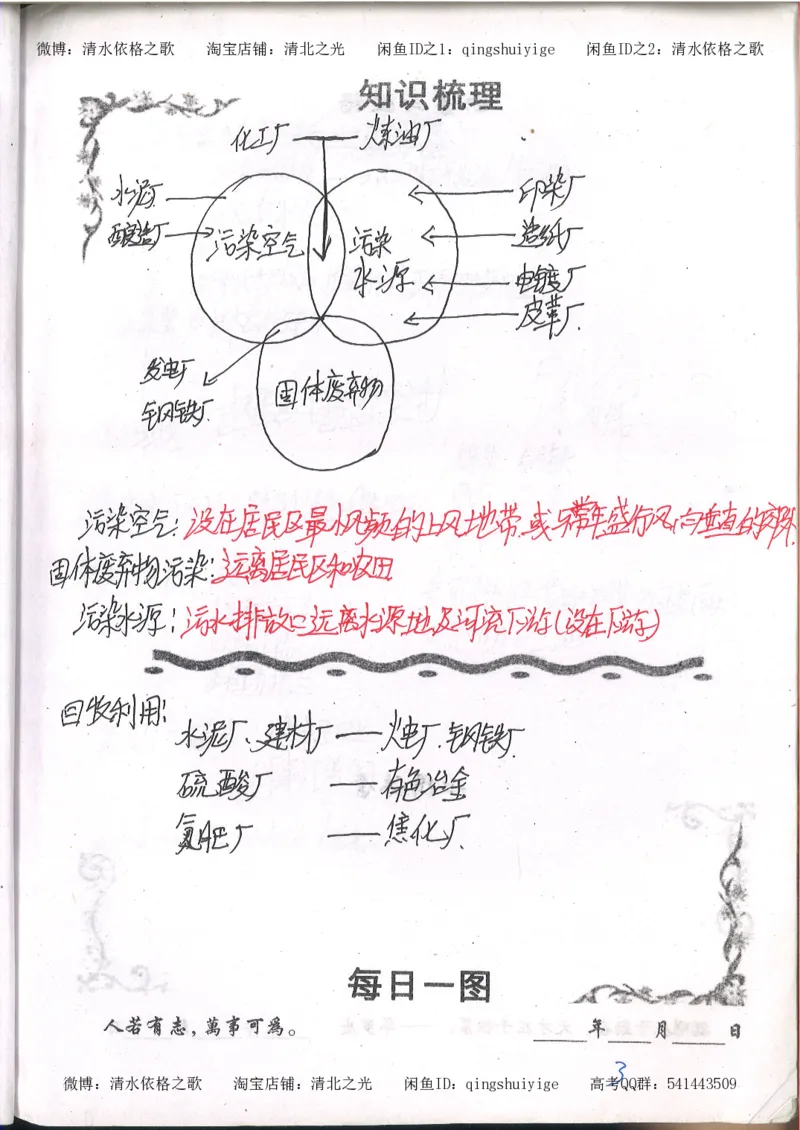 微博：清水依格之歌 淘宝店铺：清北之光 闲鱼ID之1：qingshuiyige 闲鱼ID之2：清水依格之歌
知识梳理
化工厂 炼油厂
水泥厂 印染厂
酿造厂 污染空气 污染水源 造纸厂
电镀厂
皮革厂
发电厂
钢铁厂 固体废弃物
污染空气：设在居民区最小风频的上风地带，或与常年盛行风向垂直的郊外
固体废弃物污染：远离居民区和农田
污染水源：污水排放口远离水源地及河流下游（设在下游）
回收利用：
水泥厂、建材厂——火电厂、钢铁厂
硫酸厂——有色冶金
氮肥厂——焦化厂
每日一图
人若有志，萬事可為。 年 月 日
3
微博：清水依格之歌 淘宝店铺：清北之光 闲鱼ID：qingshuiyige 高考QQ群：541443509